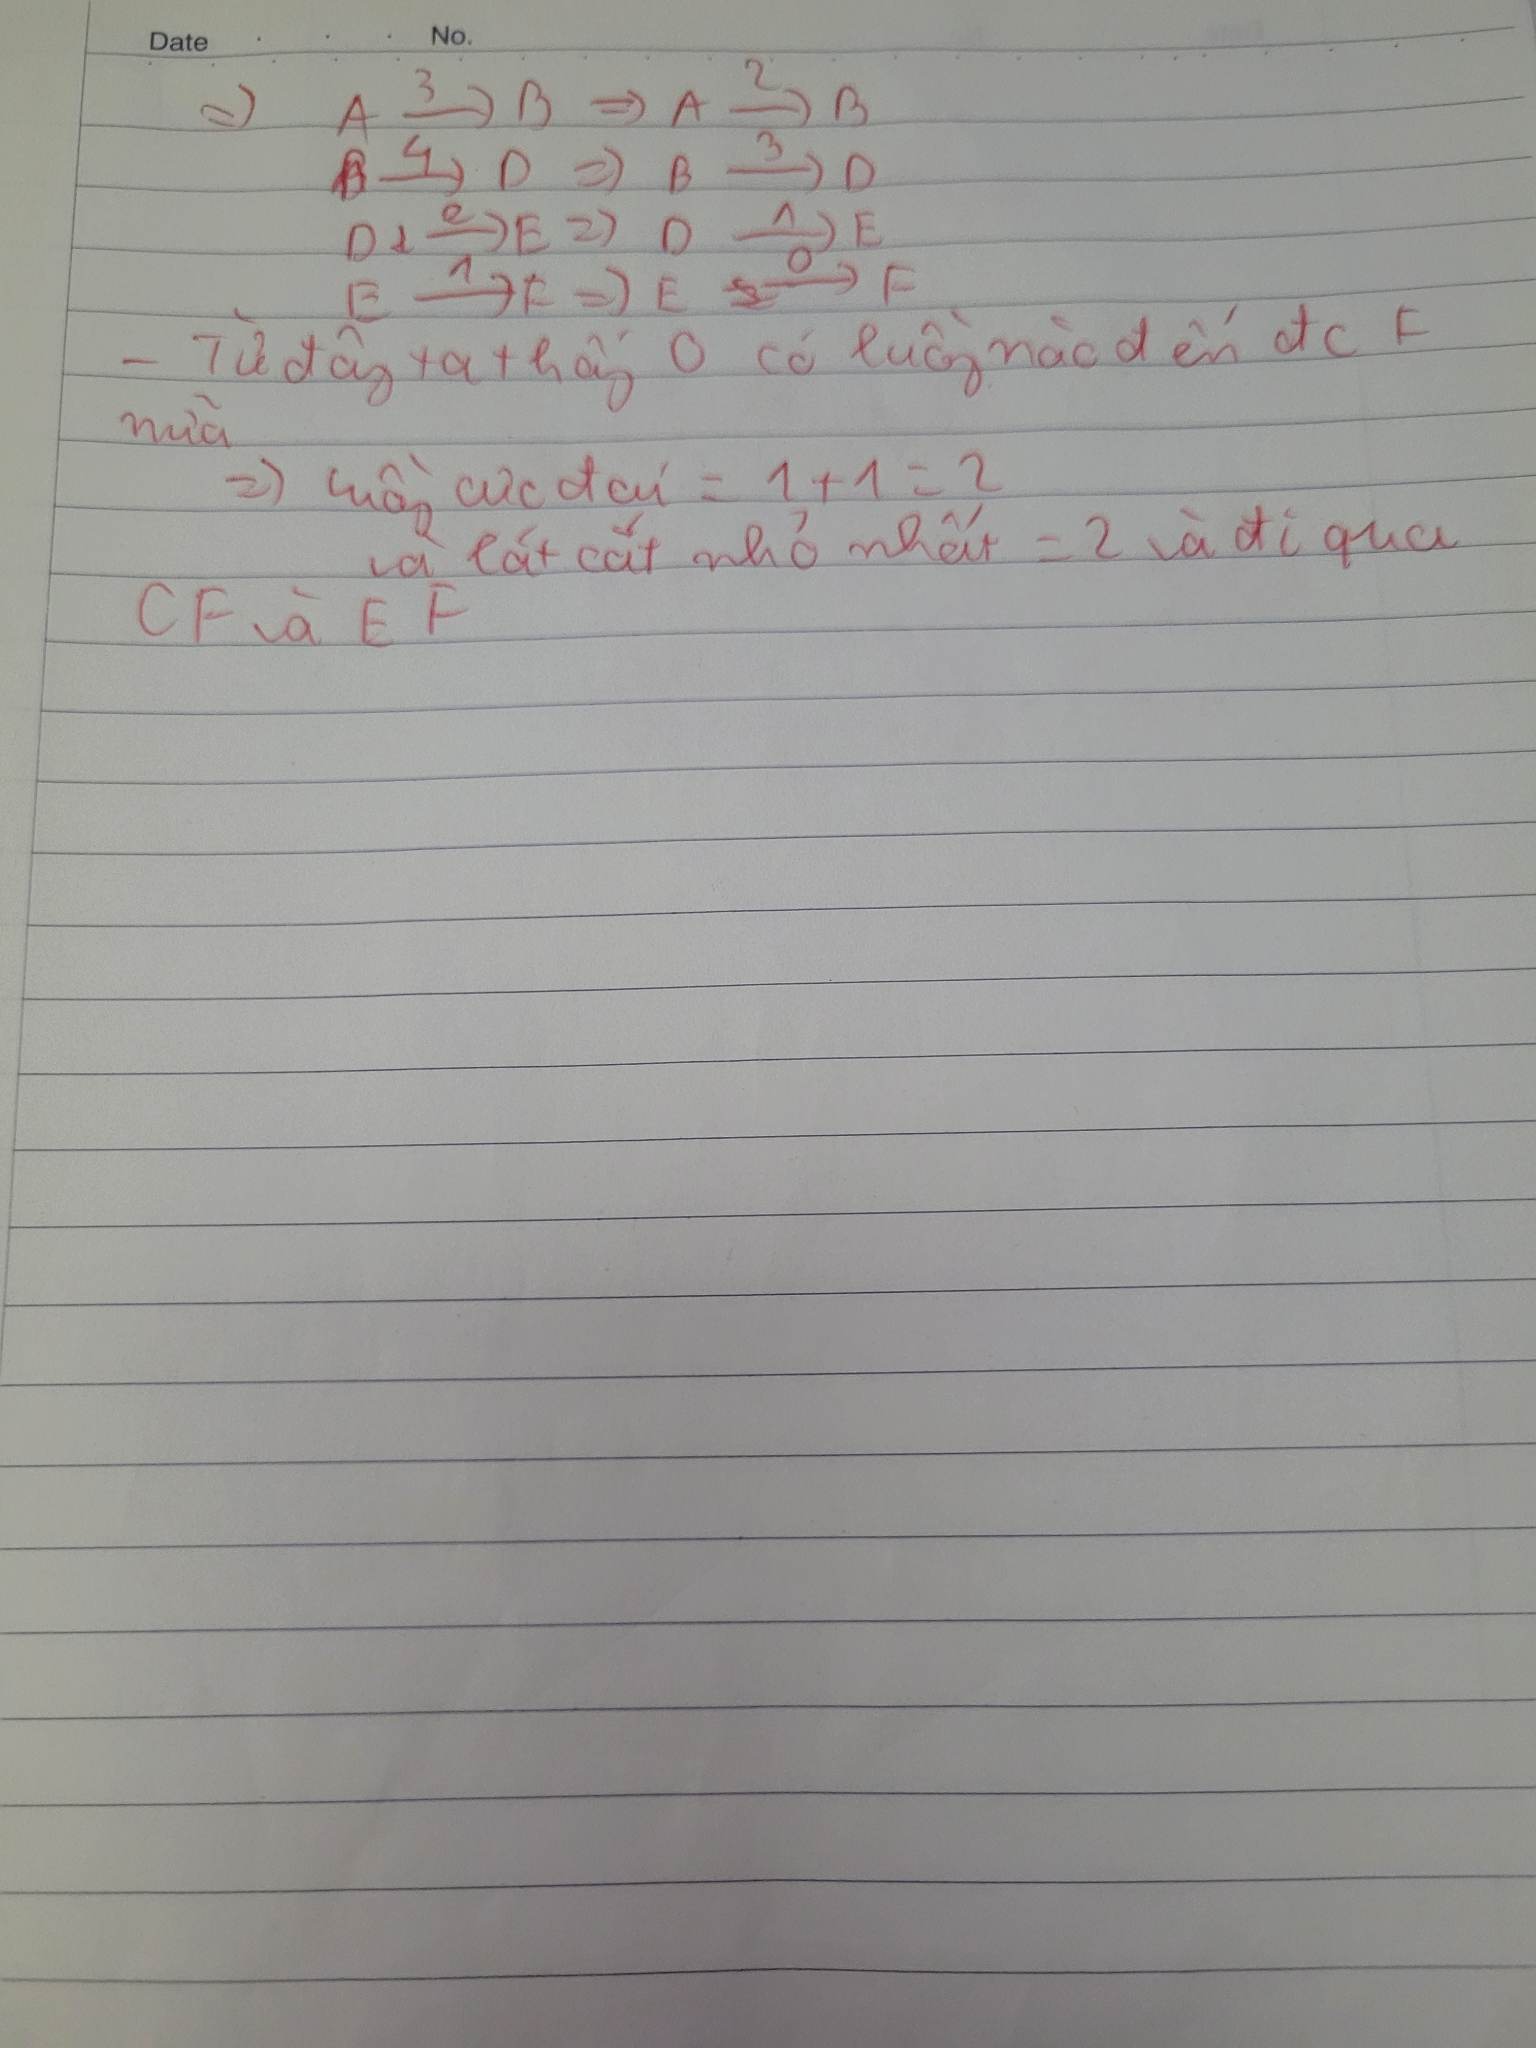 Date . . . No.
=> A 3→ B => A 2→ B
B 4→ D => B 3→ D
D 2→ E => D 1→ E
E 1→ F => E 0→ F
- Từ đây ta thấy 0 có luồng nào đến đc F
nữa
=> Luồng cực đại = 1 + 1 = 2
và lát cắt nhỏ nhất = 2 và đi qua
CF và EF